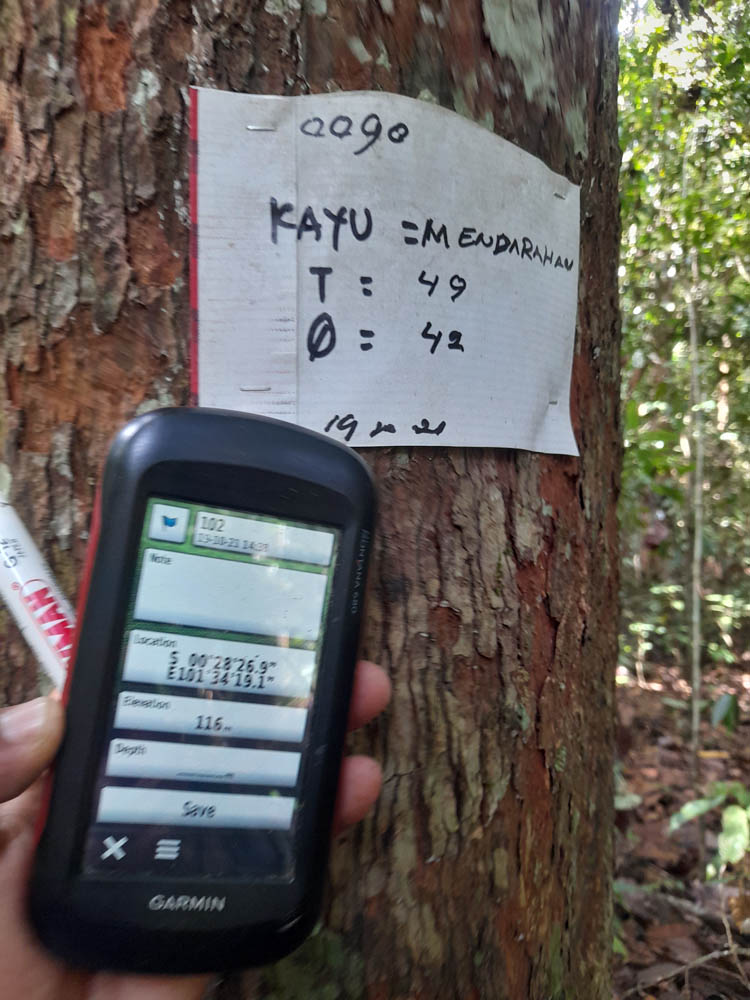 0090
KAYU = MENDARAHAN
T = 49
Ø = 42
MONTANA 680
102
Note
Location
S 00°28'26.9"
E101°34'19.1"
Elevation
116m
Depth
Save
GARMIN